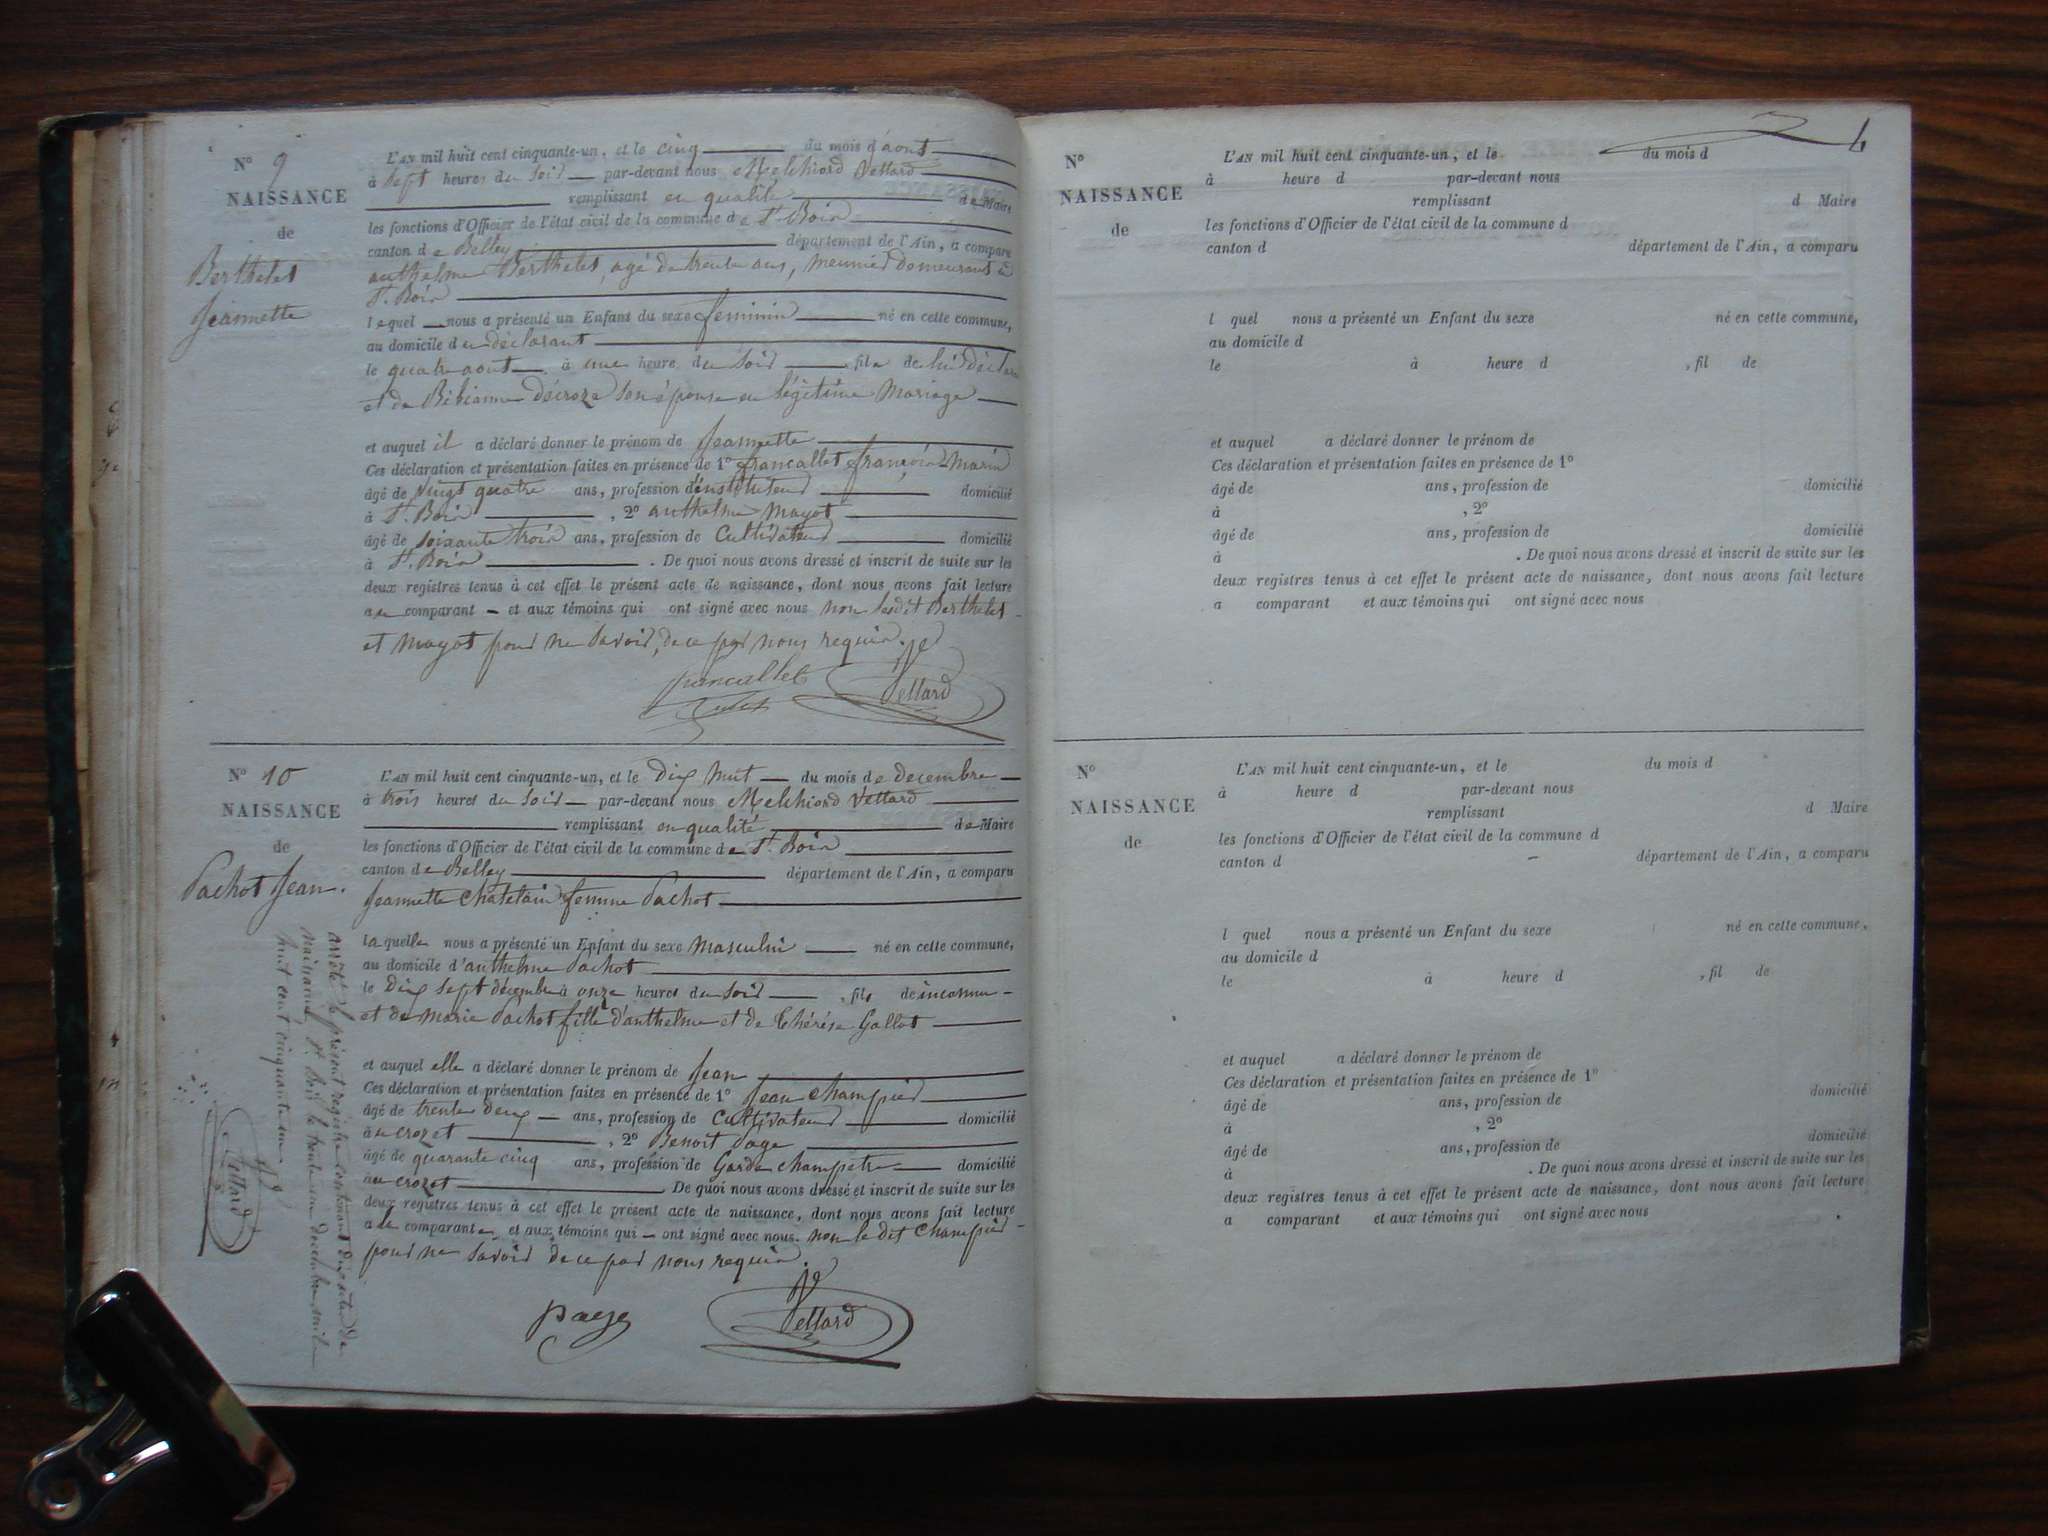 N° 9
NAISSANCE
de
Berthelet
Jeannette
L'AN mil huit cent cinquante-un, et le cinq du mois d'aout
à sept heures du soir par-devant nous Melchiord Vettard
remplissant en qualité de Maire
les fonctions d'Officier de l'état civil de la commune de St. Bois
canton de Belley département de l'Ain, a comparu
anthelme Berthelet, agé de trente ans, meunier domeurant à
St. Bois
lequel nous a présenté un Enfant du sexe feminin né en cette commune,
au domicile du déclarant
le quatre aout à une heure du soir fille de lui déclara
et de Bibianne décroze son épouse en légitime Mariage
et auquel il a déclaré donner le prénom de Jeannette
Ces déclaration et présentation faites en présence de 1° francallet françois Marin
âgé de vingt quatre ans, profession d'instituteur domicilié
à St. Bois , 2° anthelme Mayot
âgé de soixante trois ans, profession de Cultivateur domicilié
à St. Bois . De quoi nous avons dressé et inscrit de suite sur les
deux registres tenus à cet effet le présent acte de naissance, dont nous avons fait lecture
au comparant et aux témoins qui ont signé avec nous non lesdit Berthelet
et Mayot pour ne savoir, de ce par nous requis.
francallet Vettard
N° 10
NAISSANCE
de
Pachot Jean.
L'AN mil huit cent cinquante-un, et le Dix huit du mois de decembre
à trois heures du soir par-devant nous Melchiord Vettard
remplissant en qualité de Maire
les fonctions d'Officier de l'état civil de la commune de St. Bois
canton de Belley département de l'Ain, a comparu
Jeannette Chatelain femme Pachot
laquelle nous a présenté un Enfant du sexe Masculin né en cette commune,
au domicile d'anthelme Pachot
le Dix sept décembre à onze heures du soir , fils de inconnu
et de Marie Pachot fille d'anthelme et de Thérése Gallot
et auquel elle a déclaré donner le prénom de Jean
Ces déclaration et présentation faites en présence de 1° Jean Champied
âgé de trente deux ans, profession de Cultivateur domicilié
au crozet , 2° Benoit Page
âgé de quarante cinq ans, profession de Garde champêtre domicilié
au crozet De quoi nous avons dressé et inscrit de suite sur les
deux registres tenus à cet effet le présent acte de naissance, dont nous avons fait lecture
a la comparante et aux témoins qui ont signé avec nous. non le dit Champied
pour ne savoir de ce par nous requis.
page Vettard
arrêté le présent registre contenant dix actes de
naissance. St. Bois le trente un decembre mil
huit cent cinquante un
Vettard
4
N°
NAISSANCE
de
L'AN mil huit cent cinquante-un, et le du mois d
à heure d par-devant nous
remplissant d Maire
les fonctions d'Officier de l'état civil de la commune d
canton d département de l'Ain, a comparu
l quel nous a présenté un Enfant du sexe né en cette commune,
au domicile d
le à heure d , fil de
et auquel a déclaré donner le prénom de
Ces déclaration et présentation faites en présence de 1°
âgé de ans, profession de domicilié
à , 2°
âgé de ans, profession de domicilié
à . De quoi nous avons dressé et inscrit de suite sur les
deux registres tenus à cet effet le présent acte de naissance, dont nous avons fait lecture
a comparant et aux témoins qui ont signé avec nous
N°
NAISSANCE
de
L'AN mil huit cent cinquante-un, et le du mois d
à heure d par-devant nous
remplissant d Maire
les fonctions d'Officier de l'état civil de la commune d
canton d département de l'Ain, a comparu
l quel nous a présenté un Enfant du sexe né en cette commune,
au domicile d
le à heure d , fil de
et auquel a déclaré donner le prénom de
Ces déclaration et présentation faites en présence de 1°
âgé de ans, profession de domicilié
à , 2°
âgé de ans, profession de domicilié
à . De quoi nous avons dressé et inscrit de suite sur les
deux registres tenus à cet effet le présent acte de naissance, dont nous avons fait lecture
a comparant et aux témoins qui ont signé avec nous